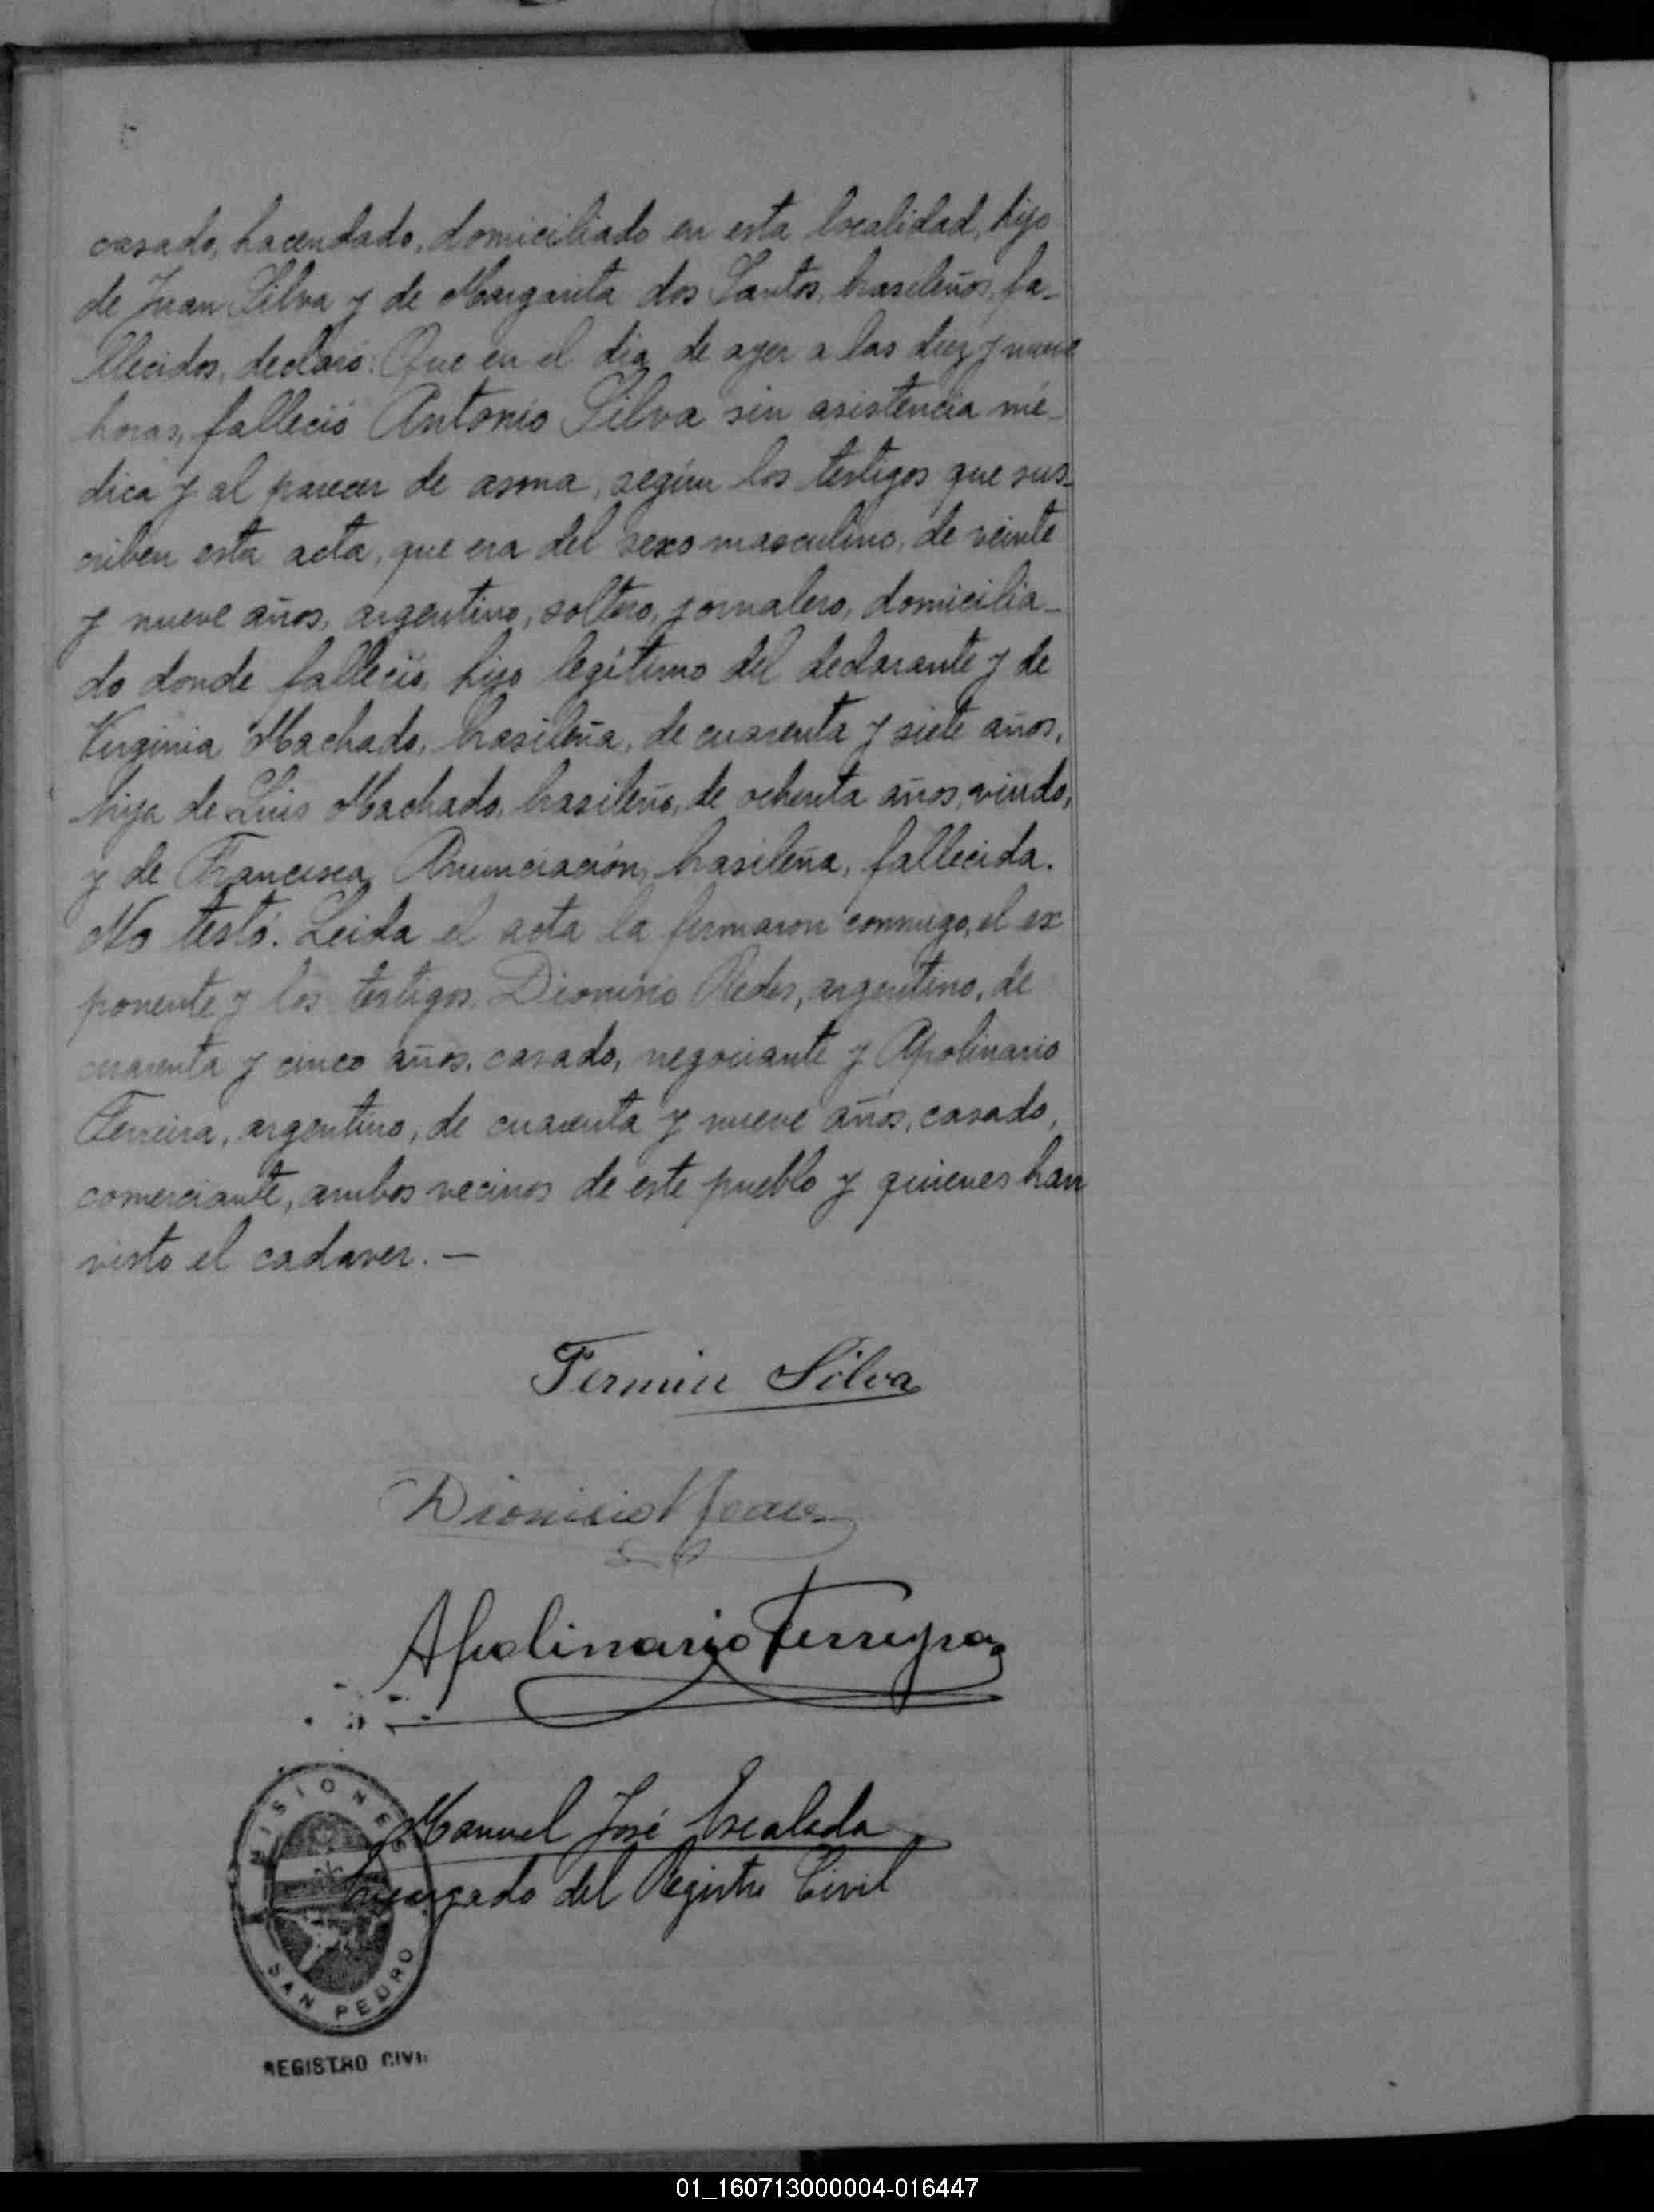 casado, hacendado, domiciliado en esta localidad, hijo
de Juan Silva y de Margarita dos Santos, brasileños, fa-
llecidos, declaró: Que en el dia de ayer a las diez y nueve
horas, falleció Antonio Silva sin asistencia mé-
dica y al parecer de asma, según los testigos que sus-
criben esta acta, que era del sexo masculino, de veinte
y nueve años, argentino, soltero, jornalero, domicilia-
do donde falleció, hijo legítimo del declarante y de
Virginia Machado, brasileña, de cuarenta y siete años,
hija de Luis Machado, brasileño, de ochenta años, viudo,
y de Francisca Anunciación, brasileña, fallecida.
No testó. Leida el acta la firmaron conmigo, el ex
ponente y los testigos Dionisio, argentino, de
cuarenta y cinco años, casado, negociante y Apolinario
Ferreira, argentino, de cuarenta y nueve años, casado,
comerciante, ambos vecinos de este pueblo y quienes han
visto el cadaver. —
Fermin Silva
Dionisio
Apolinario Ferreyra
Manuel José Escalada
Encargado del Registro Civil
MISIONES
SAN PEDRO
REGISTRO CIVIL
01_160713000004-016447